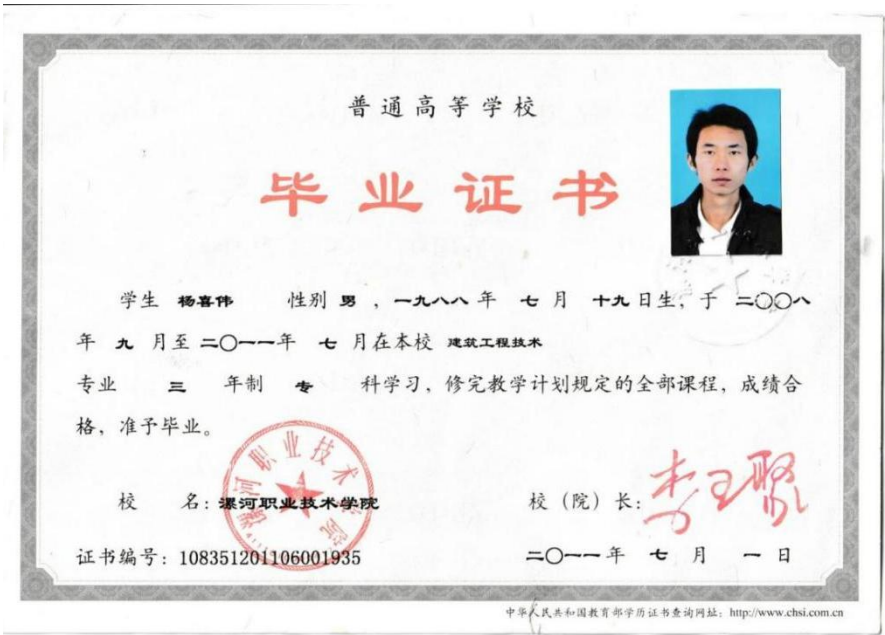 普通高等学校
毕业证书
学生 杨喜伟 性别 男 ，一九八八 年 七 月 十九 日生，于 二〇〇八
年 九 月至 二〇一一 年 七 月在本校 建筑工程技术
专业 三 年制 专 科学习，修完教学计划规定的全部课程，成绩合
格，准予毕业。
漯河职业技术学院
校 名：漯河职业技术学院 校（院）长：
证书编号：108351201106001935 二〇一一 年 七 月 一 日
中华人民共和国教育部学历证书查询网址：http://www.chsi.com.cn